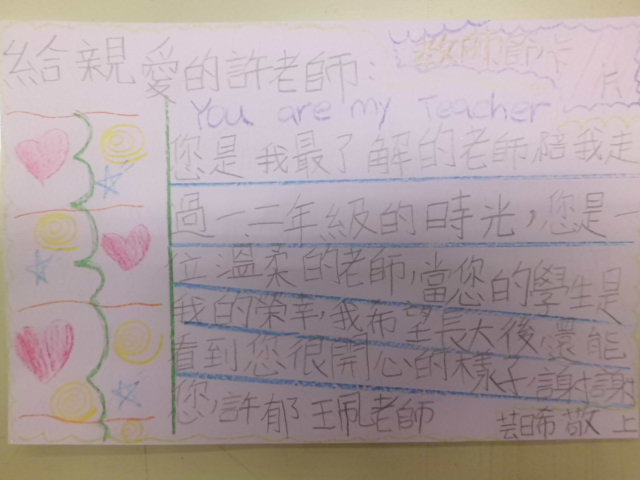 給親愛的許老師：
教師節卡片
You are my Teacher
您是我最了解的老師陪我走
過一、二年級的時光，您是一
位溫柔的老師，當您的學生是
我的榮幸，我希望長大後還能
看到您很開心的樣子，謝謝
您，許郁珮老師
芸晞敬上